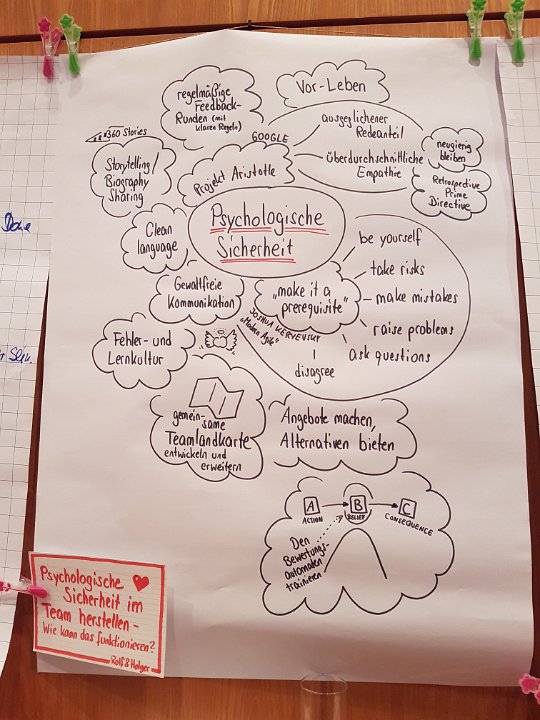 regelmäßige
Feedback-
Runden (mit
klaren Regeln)
Vor-Leben
360 Stories
Storytelling/
Biography
Sharing
GOOGLE
Projekt Aristotle
ausgeglichener
Redeanteil
überdurchschnittliche
Empathie
neugierig
bleiben
Retrospective
Prime
Directive
Clean
language
Psychologische
Sicherheit
Gewaltfreie
Kommunikation
"make it a
prerequisite"
JOSHUA KERIEVSKY
"Modern Agile"
be yourself
take risks
make mistakes
raise problems
ask questions
disagree
Fehler- und
Lernkultur
gemein-
same
Teamlandkarte
entwickeln und
erweitern
Angebote machen,
Alternativen bieten
A
B
C
ACTION
BELIEF
CONSEQUENCE
Den
Bewertungs-
automaten
trainieren
Psychologische
Sicherheit im
Team herstellen -
Wie kann das funktionieren?
Rolf & Holger